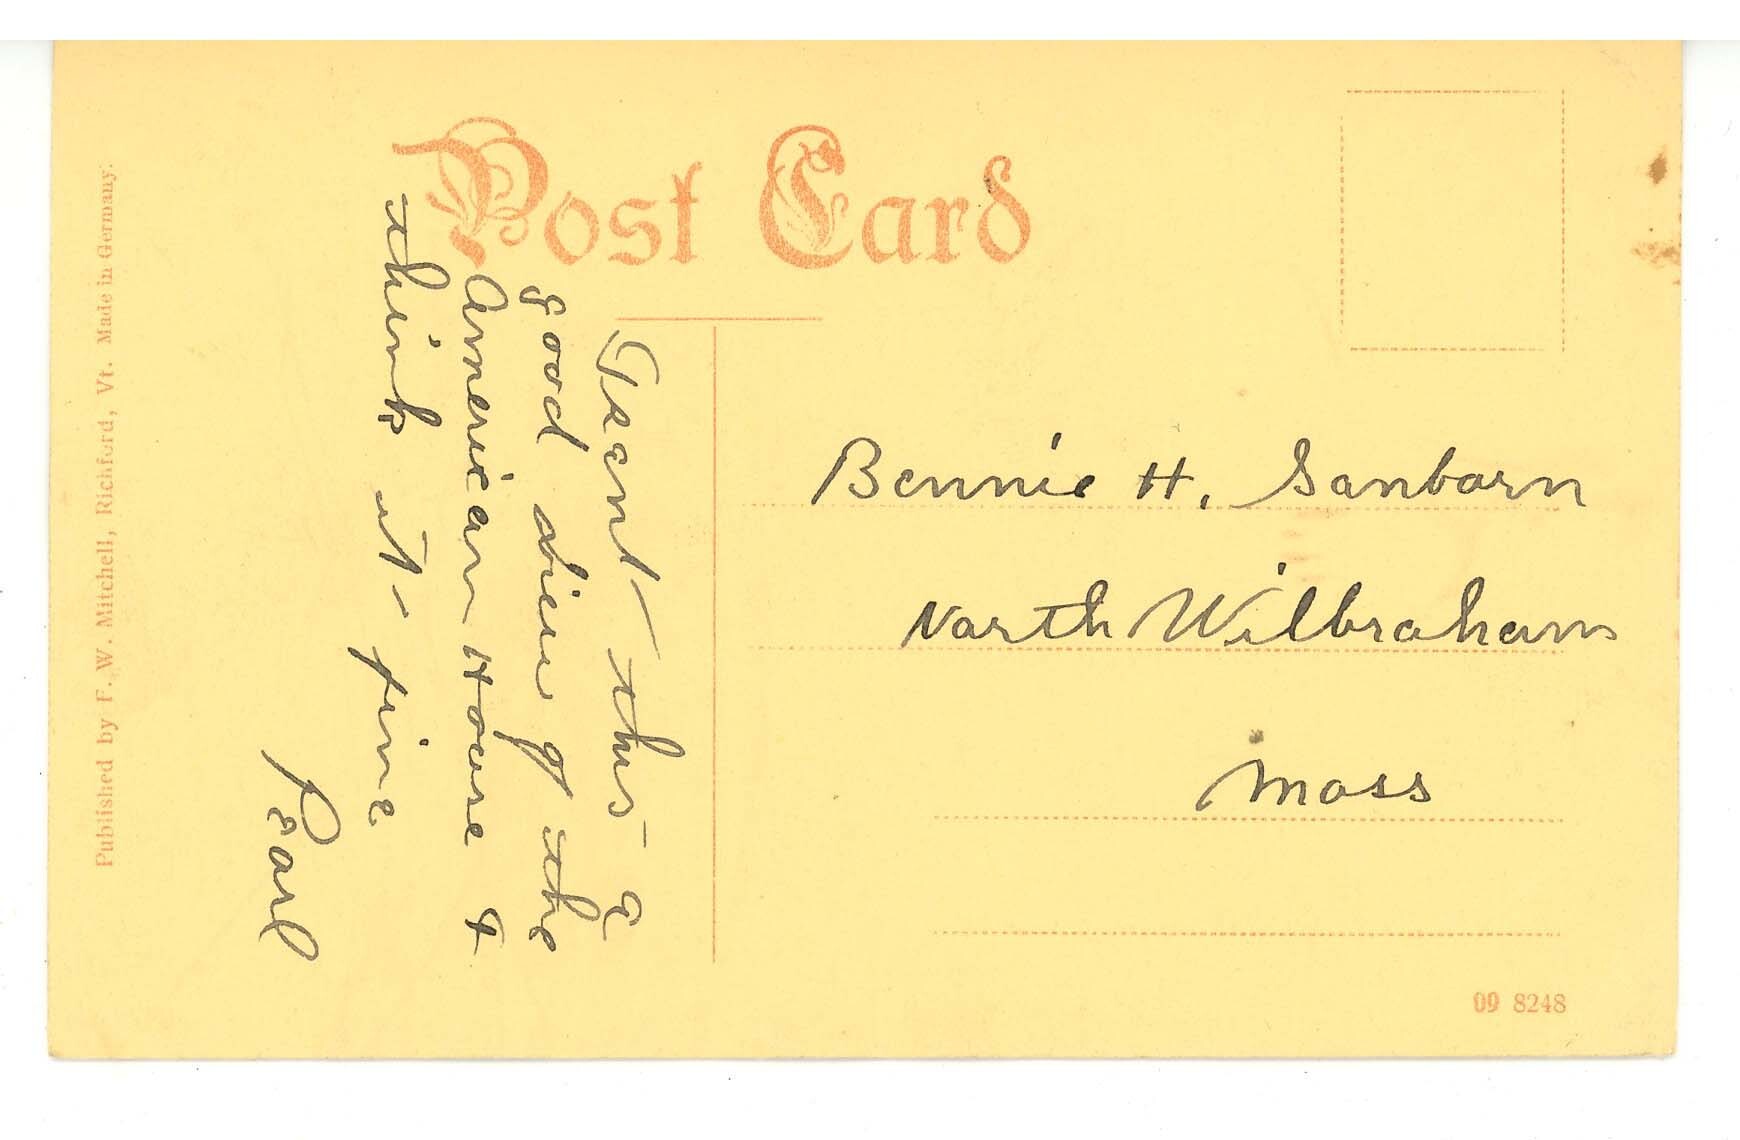 Post Card
Isent this a
good view of the
American House &
think it fine
Pearl
Bennie H. Sanborn
North Wilbraham
Mass
Published by F. W. Mitchell, Richford, Vt. Made in Germany.
09 8248